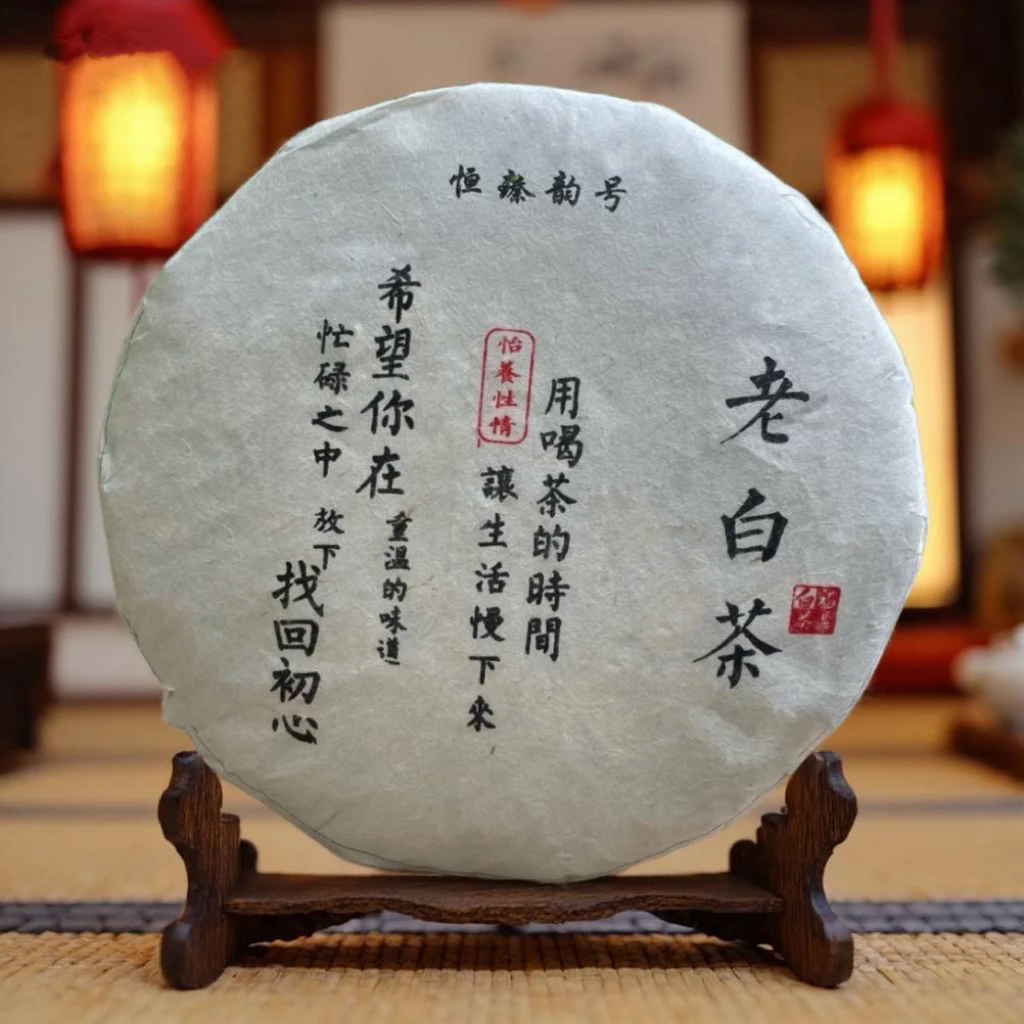 恒臻韵号
老白茶
用喝茶的時間
怡養性情
讓生活慢下來
希望你在
重温的味道
忙碌之中 放下
找回初心